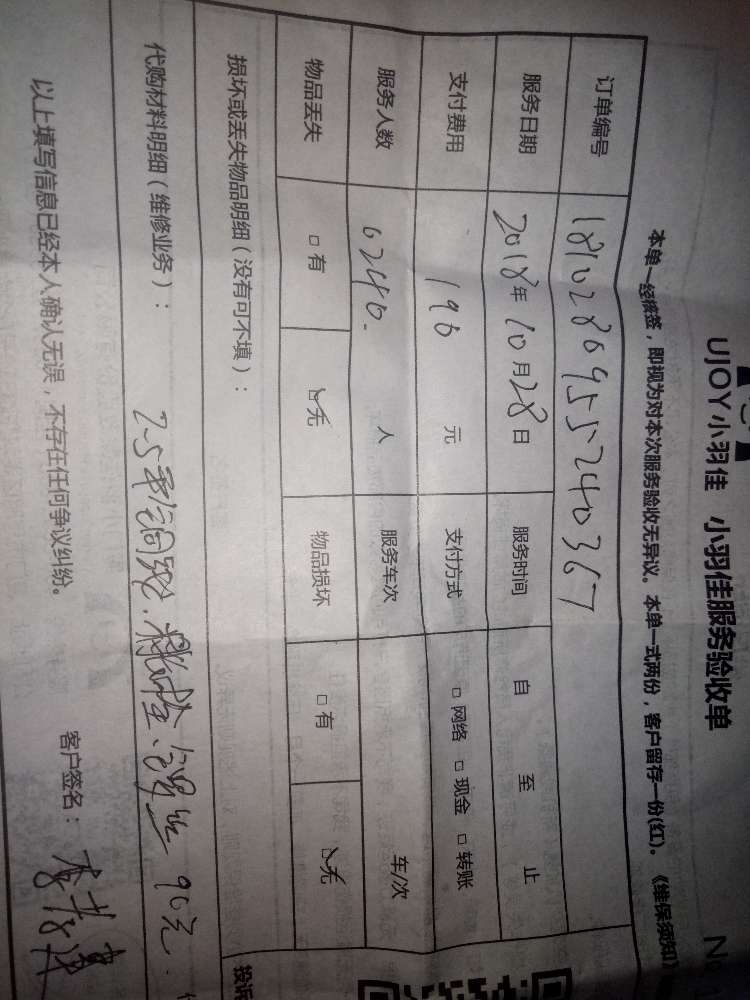 UJOY小羽佳 小羽佳服务验收单
本单一经签，即视为对本次服务验收无异议。本单一式两份，客户留存一份(红)。《维保须知》
订单编号 181028095524036７
服务日期 2018年10月28日 服务时间 自 至 止
支付费用 196 元 支付方式 □网络 □现金 □转账
服务人数 0246. 人 服务车次 车/次
物品丢失 □有 ☑无 物品损坏 □有 ☑无
损坏或丢失物品明细（没有可不填）：
代购材料明细（维修业务）： 2.5平 90元.
以上填写信息已经本人确认无误，不存在任何争议纠纷。
客户签名：
投诉